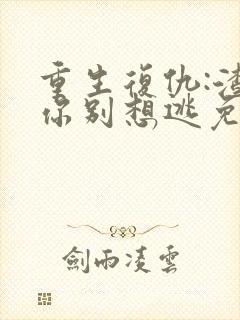 重生復仇:渣
你别想逃免
劍雨凌雲